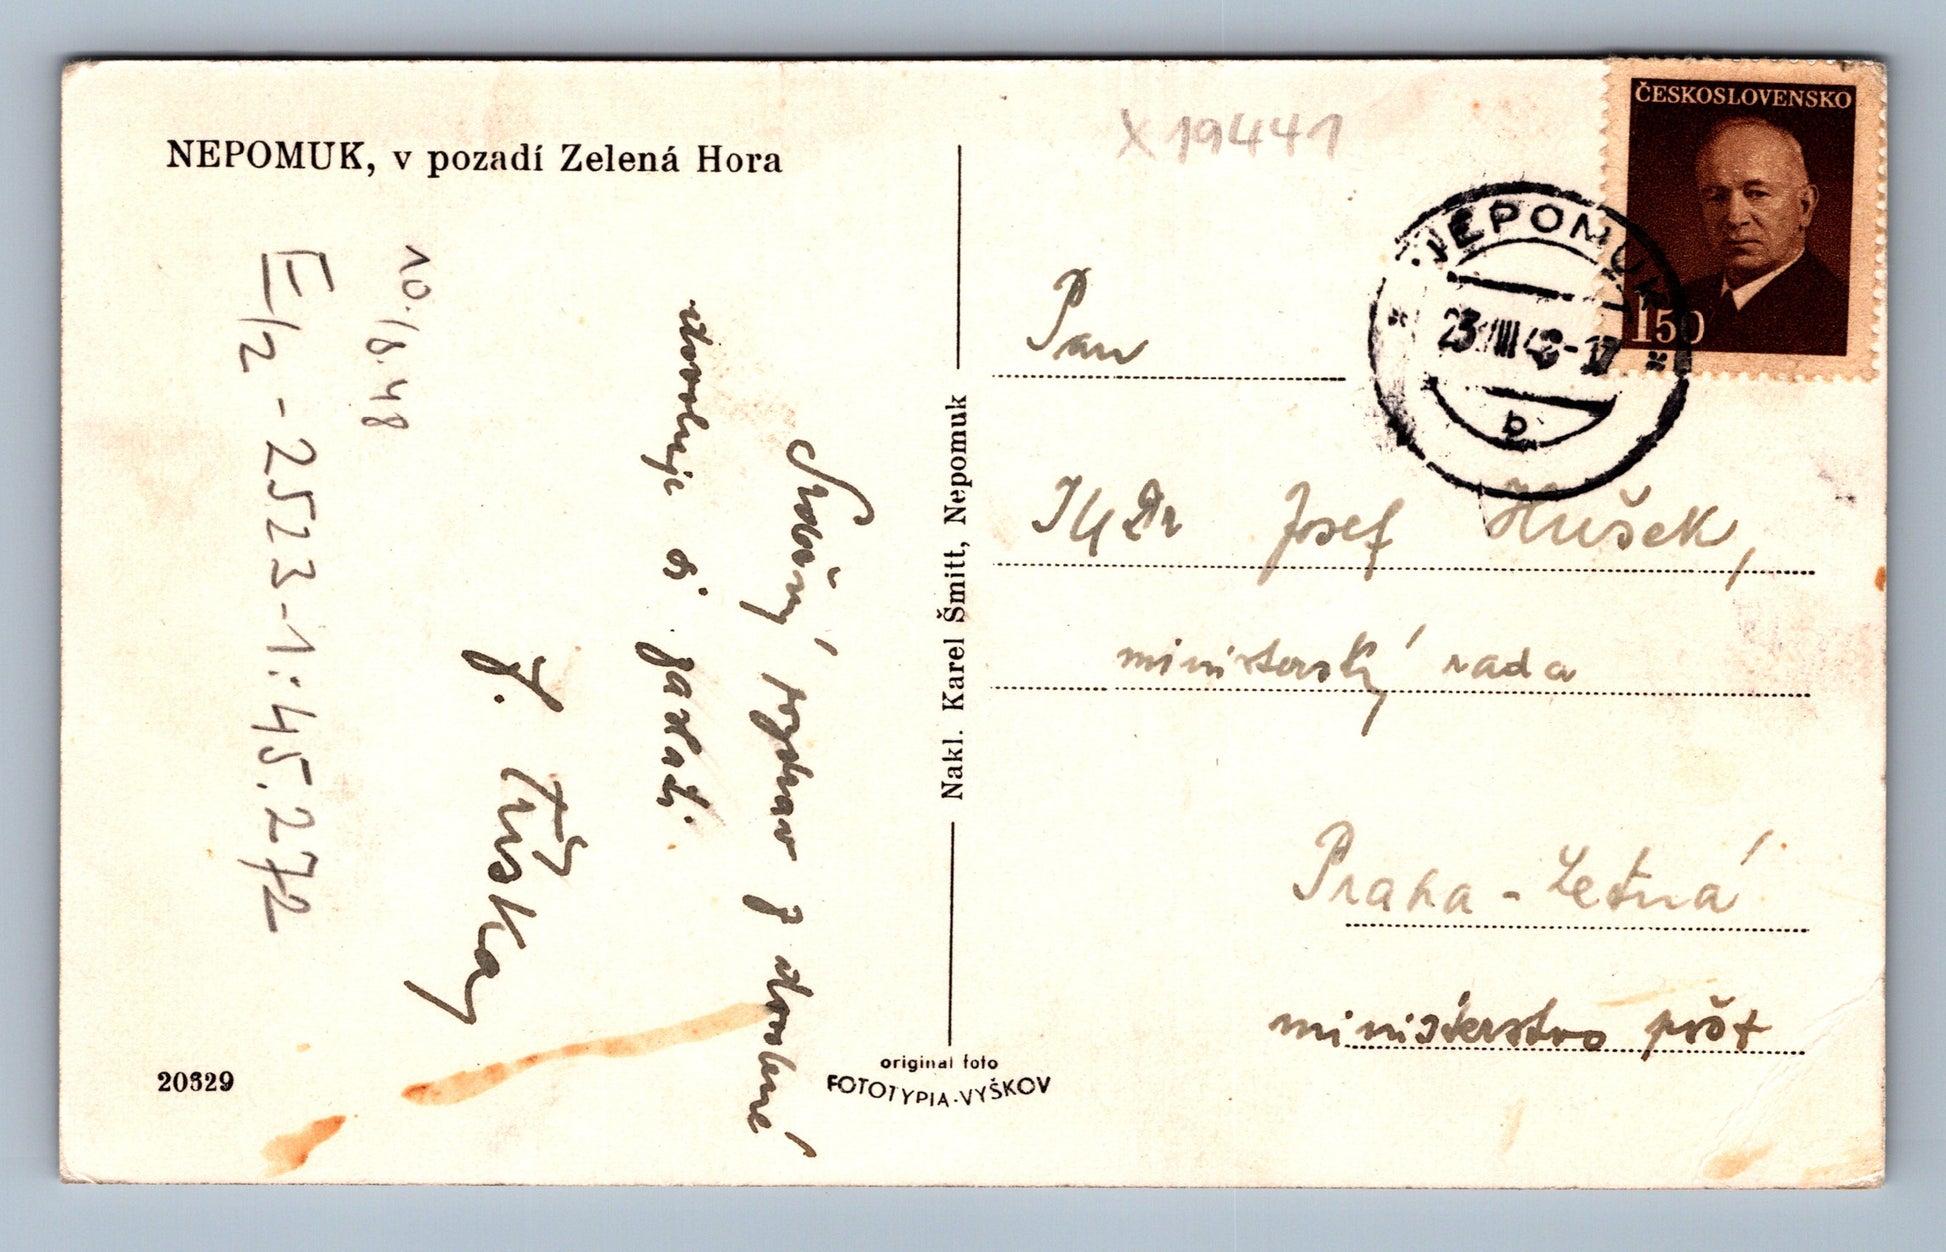 NEPOMUK, v pozadí Zelená Hora
X 19441
ČESKOSLOVENSKO
150
NEPOMUK
23.VIII 48-17
b
10./8.48
E/2 - 2523-1:45.272
Srdečný pozdrav z dovolené
dovoluje si zaslati.
J. Tuskay
Nakl. Karel Šmitt, Nepomuk
Pan
JUDr Josef Hušek,
ministerský rada
Praha - Letná
ministerstvo pošt
original foto
FOTOTYPIA-VYŠKOV
20329